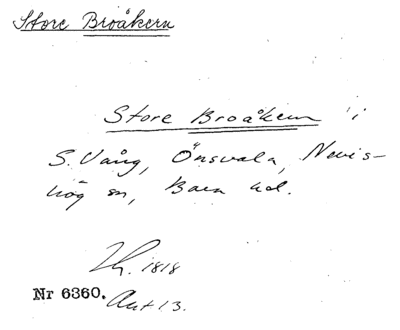 Store Broåkern
Store Broåkern i
S. Vång, Önsvala, Nevis-
hög sn, Bara hd.
1818
Nr 6360. Akt 13.